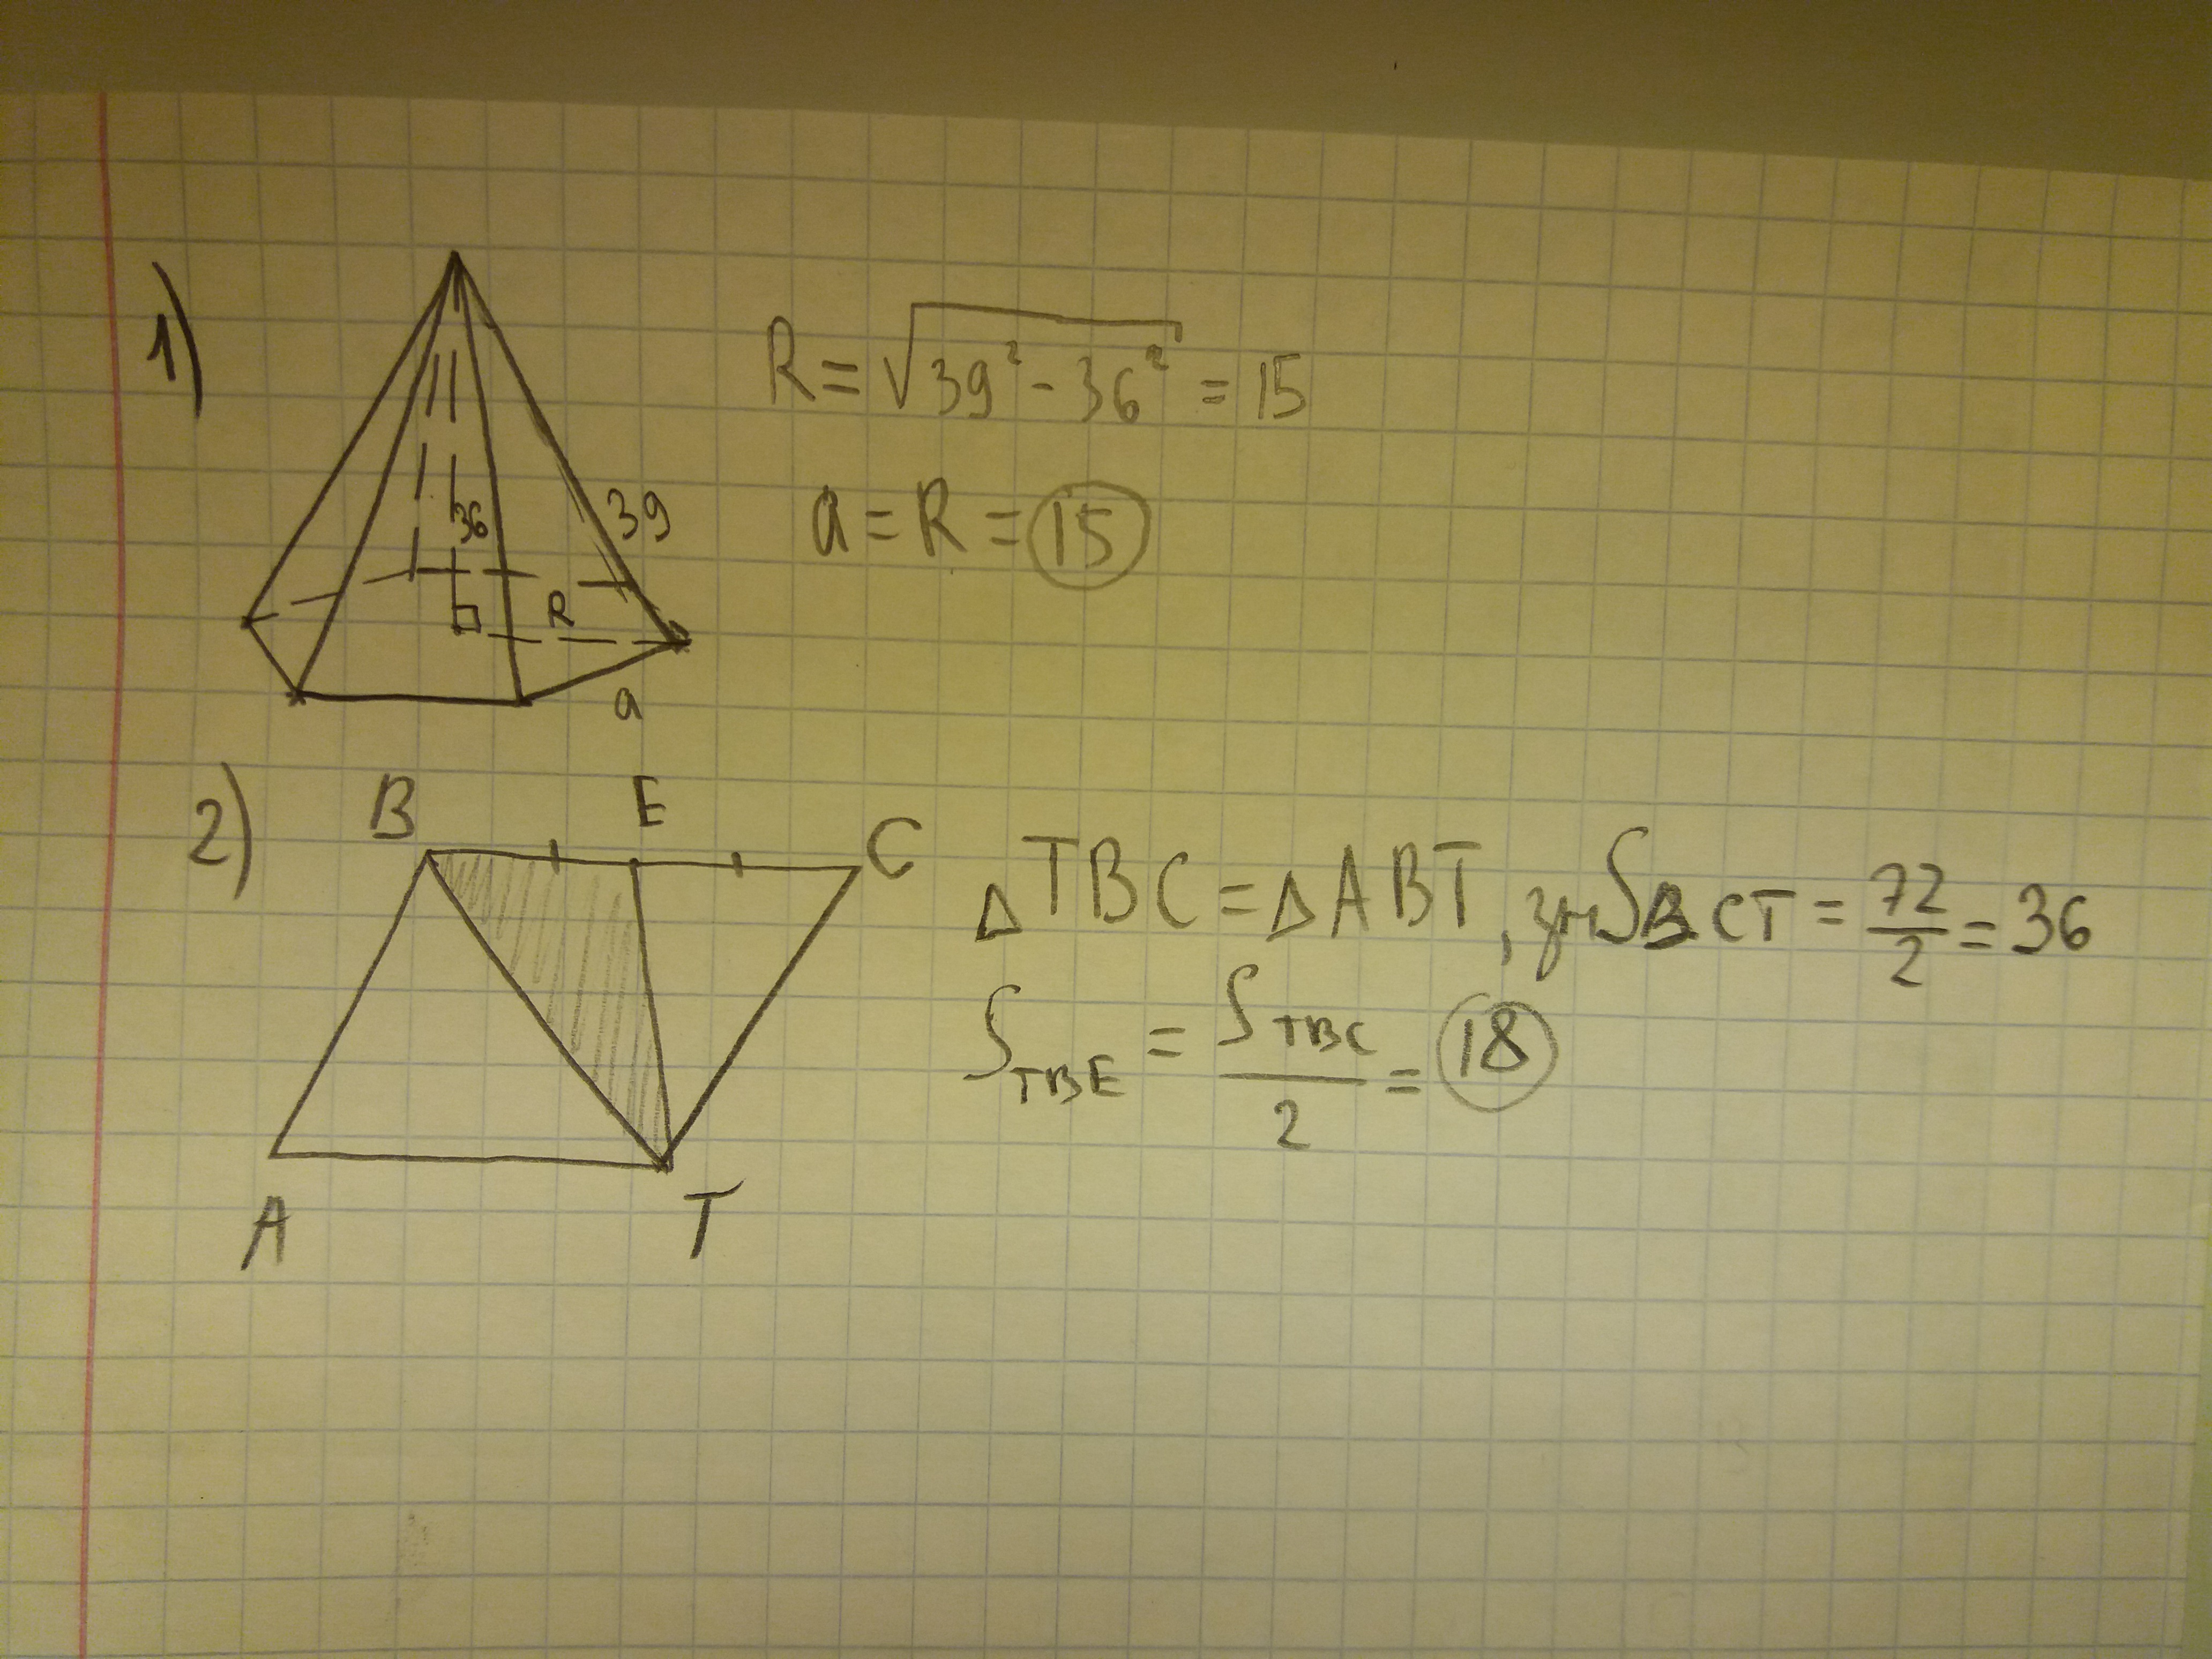 1)
36
39
R
a
R = √39² - 36² = 15
a = R = 15
2)
B E C
A T
△TBC = △ABT, зн S BCT = 72/2 = 36
S TBE = S TBC / 2 = 18